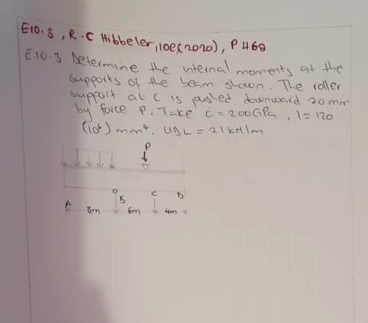 E10.3, R.C Hibbeler, 10e(2020), P469
E10.3 Determine the internal moments at the
supports of the beam shown. The roller
support at C is pushed downward 20 mm
by force P. Take E = 200GPa, I = 120
(10⁶) mm⁴. UDL = 21 kN/m
P
B C D
A 8m 6m 4m